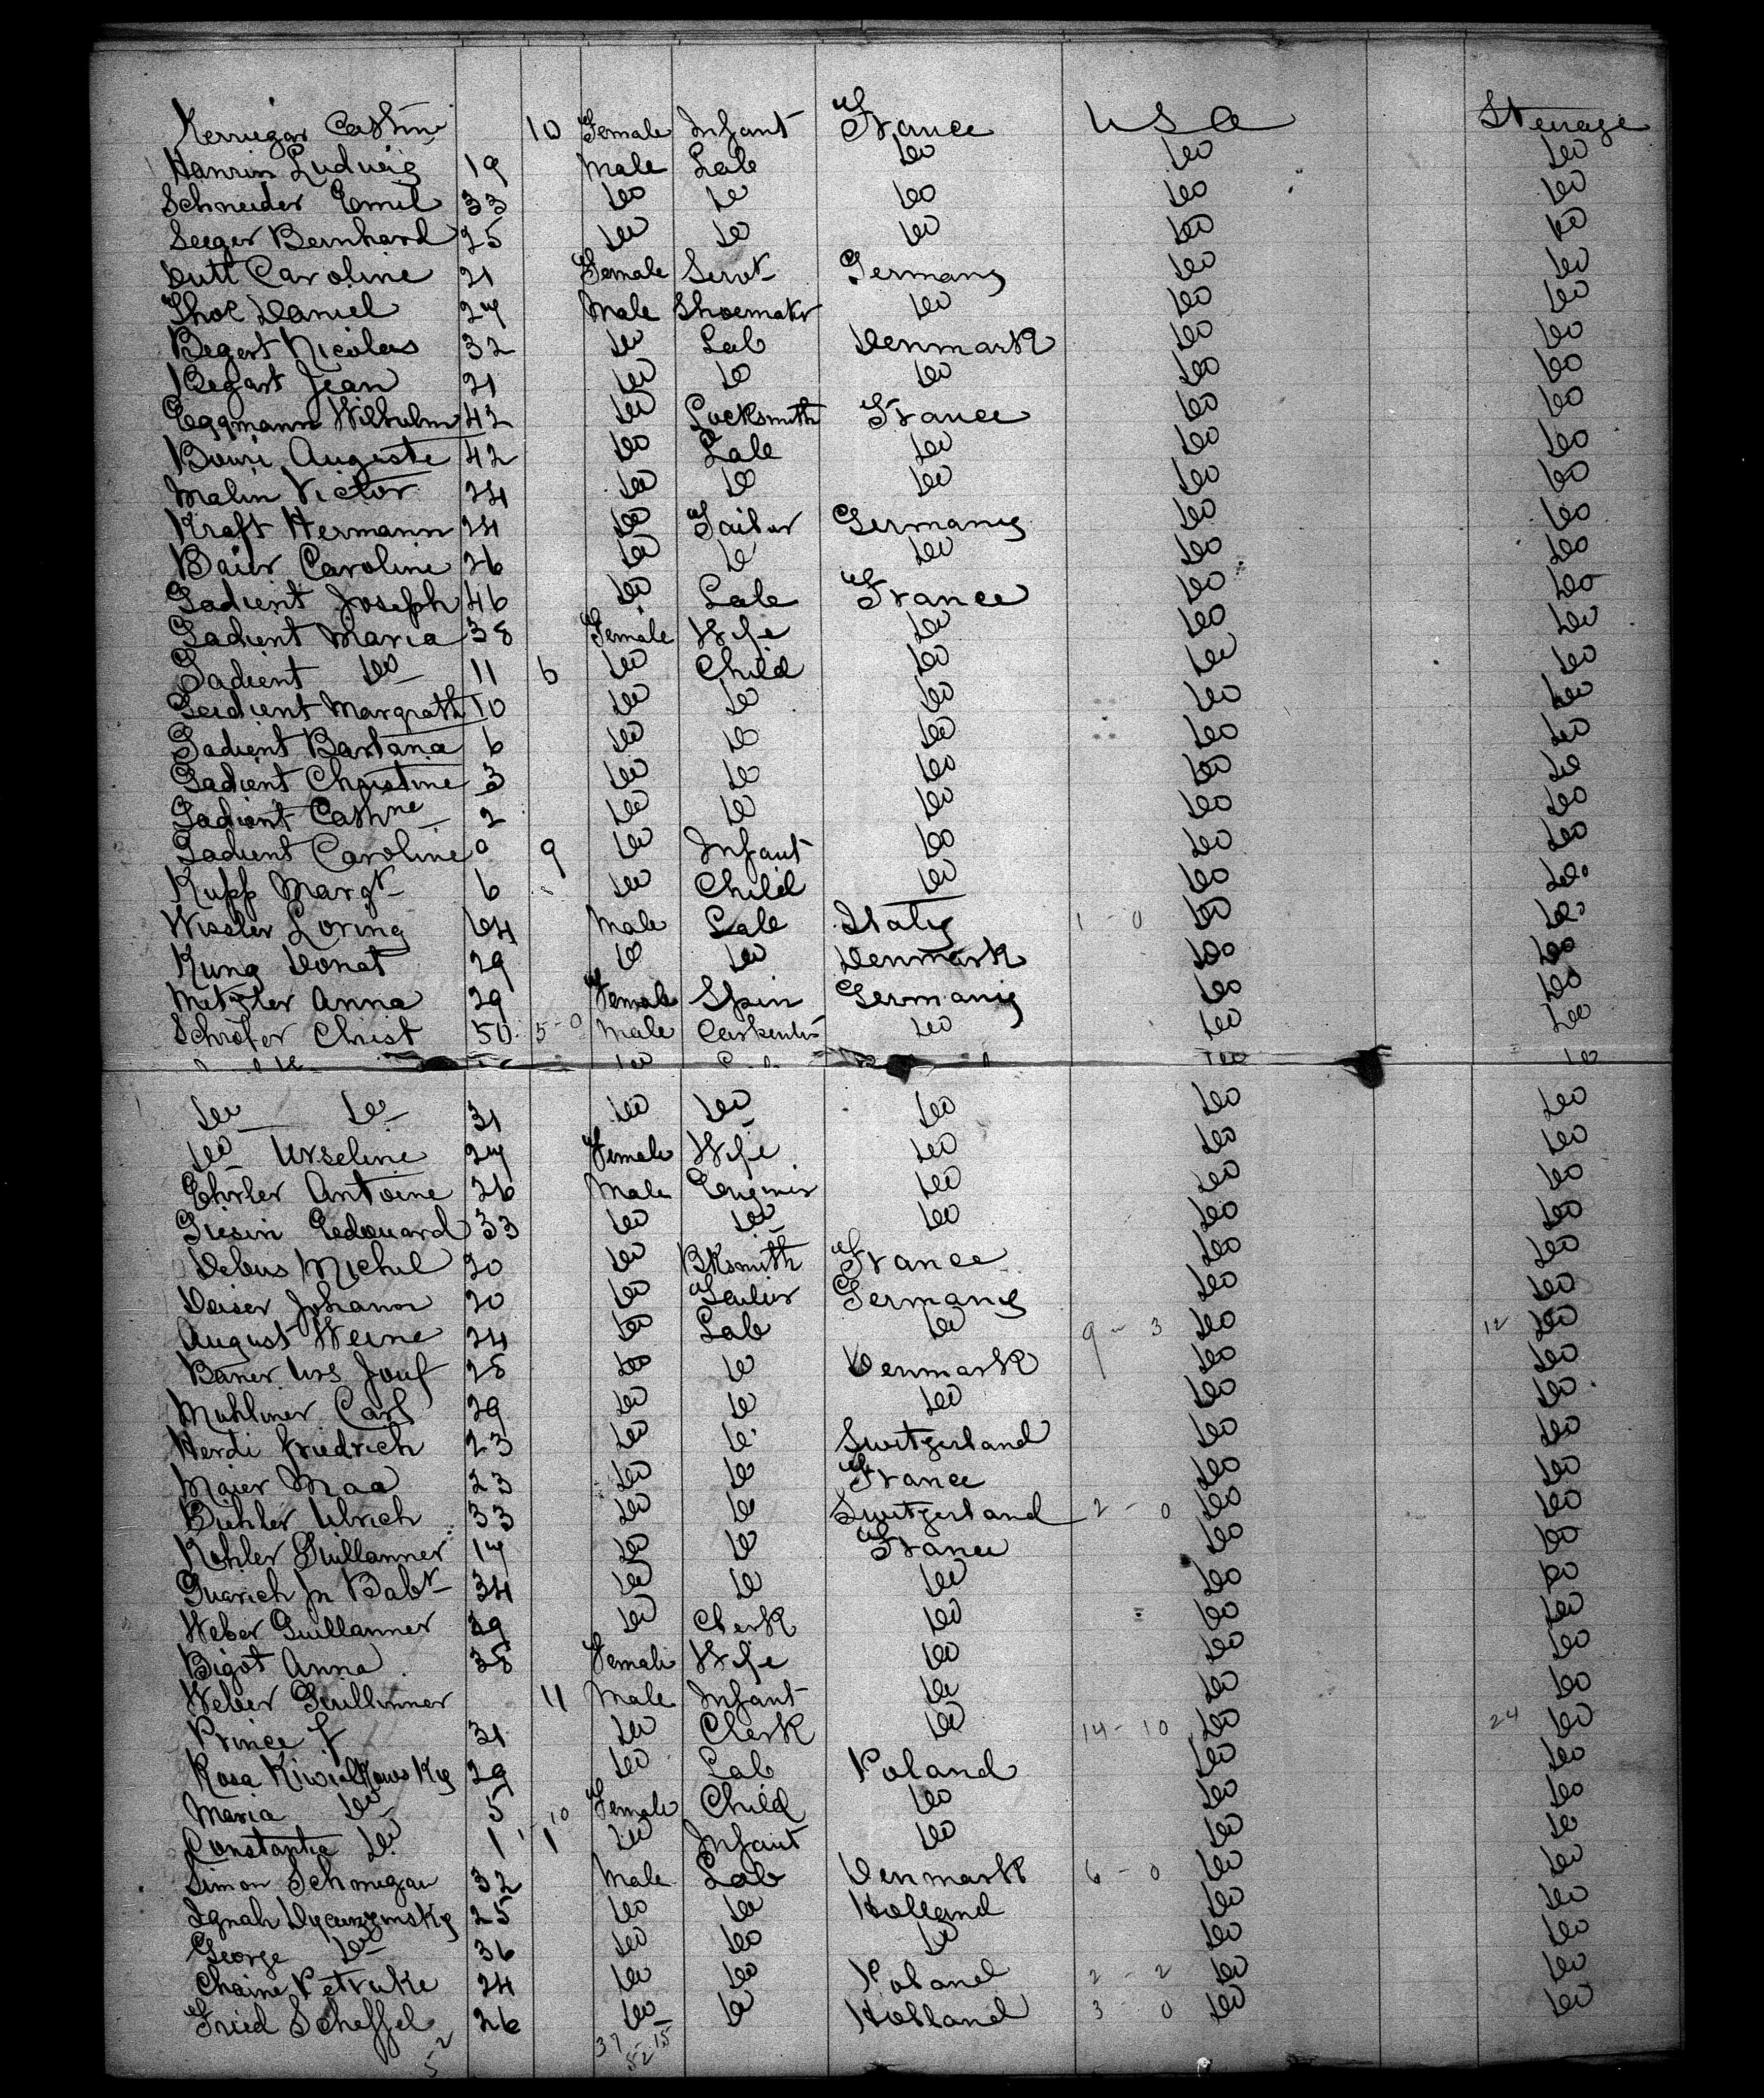 Kerrugar Cathne 10 Female Infant France USA Steerage
Hanrin Ludwig 19 Male Lab Do Do Do
Schneider Emil 33 Do Do Do Do Do
Seeger Bernhard 25 Do Do Do Do Do
Dutt Caroline 21 Female Servt Germany Do Do
Thol Daniel 27 Male Shoemakr Do Do Do
Begert Nicolas 32 Do Lab Denmark Do Do
Begart Jean 21 Do Do Do Do Do
Eggmann Wilhulm 42 Do Locksmith France Do Do
Bouri Auguste 42 Do Lab Do Do Do
Malin Victor 24 Do Do Do Do Do
Kraft Hermann 24 Do Tailor Germany Do Do
Baier Caroline 26 Do Do Do Do Do
Gadient Joseph 46 Do Lab France Do Do
Gadient Maria 38 Female Wife Do Do Do
Gadient Do 11 6 Do Child Do Do Do
Gadient Margrath 10 Do Do Do Do Do
Gadient Bartana 6 Do Do Do Do Do
Gadient Christine 3 Do Do Do Do Do
Gadient Cathne 2 Do Do Do Do Do
Gadient Caroline 0 9 Do Infant Do Do Do
Rupp Margt 6 Do Child Do Do Do
Wissler Loring 64 Male Lab Italy 1 - 0 Do Do
Kung Donat 29 Do Do Denmark Do Do
Metzler Anna 29 Female Spin Germany Do Do
Schrofer Christ 50 5-0 Male Carpenter Do Do Do
Do Do 31 Do Do Do Do Do
Do Urseline 27 Female Wife Do Do Do
Ehrler Antoine 26 Male Enginer Do Do Do
Giesin Edouard 33 Do Do Do Do Do
Debus Michel 20 Do BKsmith France Do Do
Deiser Johann 20 Do Tailor Germany Do Do
August Weine 24 Do Lab Do 9 - 3 Do 12 Do
Baner Urs Josef 28 Do Do Denmark Do Do
Muhlmer Carl 29 Do Do Do Do Do
Herdi Friedrich 23 Do Do Switzerland Do Do
Maier Maa 23 Do Do France Do Do
Buhler Ulrich 33 Do Do Switzerland 2 - 0 Do Do
Kohler Guillanner 17 Do Do France Do Do
Guarich Jn Babt 34 Do Do Do Do Do
Weber Guillanner 39 Do Clerk Do Do Do
Bigot Anna 38 Female Wife Do Do Do
Weber Guillinner 11 Male Infant Do Do Do
Prince F 31 Do Clerk Do 14 - 10 Do 24 Do
Rosa Kiwialkowsky 29 Do Lab Poland Do Do
Maria Do 5 Female Child Do Do Do
Constantia Do 1 1 Do Infant Do Do Do
Simon Schmigau 32 Male Lab Denmark 6 - 0 Do Do
Ignah 25 Do Do Holland Do Do
George Do 36 Do Do Do Do Do
Chaine Petruke 24 Do Do Poland 2 - 2 Do Do
Fried Scheffel 26 Do Do Holland 3 - 0 Do Do
52 37 15
52